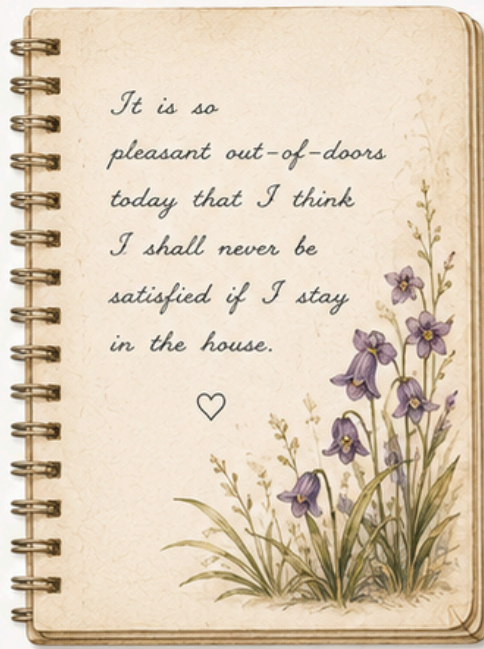 It is so
pleasant out-of-doors
today that I think
I shall never be
satisfied if I stay
in the house.